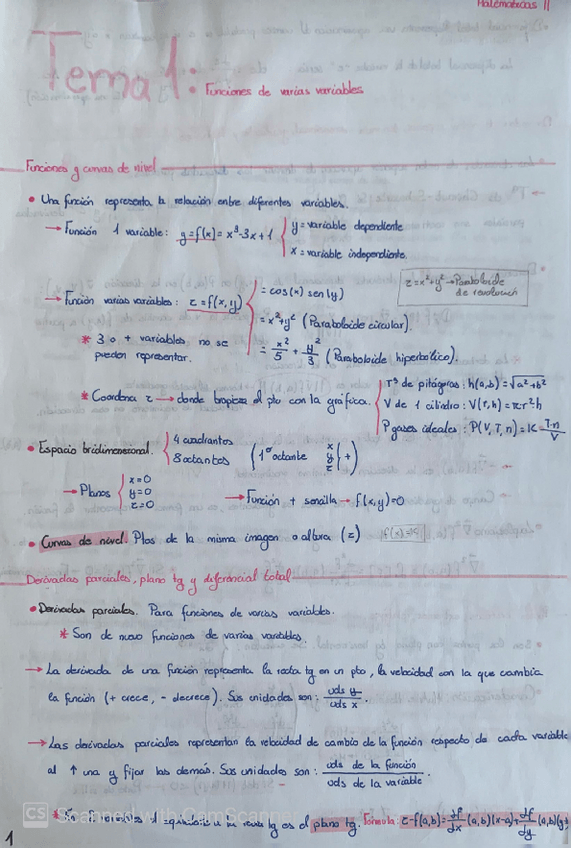 Matemáticas II
Tema 1: Funciones de varias variables
Funciones y curvas de nivel
• Una función representa la relación entre diferentes variables.
→ Función 1 variable: y=f(x)=x³-3x+1 { y=variable dependiente
x=variable independiente.
z=x²+y² → Paraboloide de revolución
→ Función varias variables: z=f(x,y) { = cos(x) sen(y)
= x²+y² (Paraboloide circular).
= x²/5 + y²/3 (Paraboloide hiperbólico).
* 3 o + variables no se
pueden representar.
* Coordena z → donde tropieza el pto con la gráfica. { Tª de pitágoras: h(a,b)=√a²+b²
V de 1 cilindro: V(r,h)=πr²h
P gases ideales: P(V,T,n)=K T·n/V
• Espacio tridimensional. { 4 cuadrantes
8 octantes (1º octante x y z } +)
→ Planos { x=0
y=0
z=0
→ Función + sencilla → f(x,y)=0
• Curvas de nivel. Ptos de la misma imagen o altura (z) f(x)=K
Derivadas parciales, plano tg y diferencial total
• Derivadas parciales. Para funciones de varias variables.
* Son de nuevo funciones de varias variables.
→ La derivada de una función representa la recta tg en un pto, la velocidad con la que cambia
la función (+ crece, - decrece). Sus unidades son: uds y/uds x.
→ Las derivadas parciales representan la velocidad de cambio de la función respecto de cada variable
al ↑ una y fijar las demás. Sus unidades son: uds de la función/uds de la variable.
* En 2 variables el equivalente a la recta tg es el plano tg. Fórmula: z-f(a,b)=df/dx (a,b)(x-a)+df/dy (a,b)(y-
CS Scanned with CamScanner
1